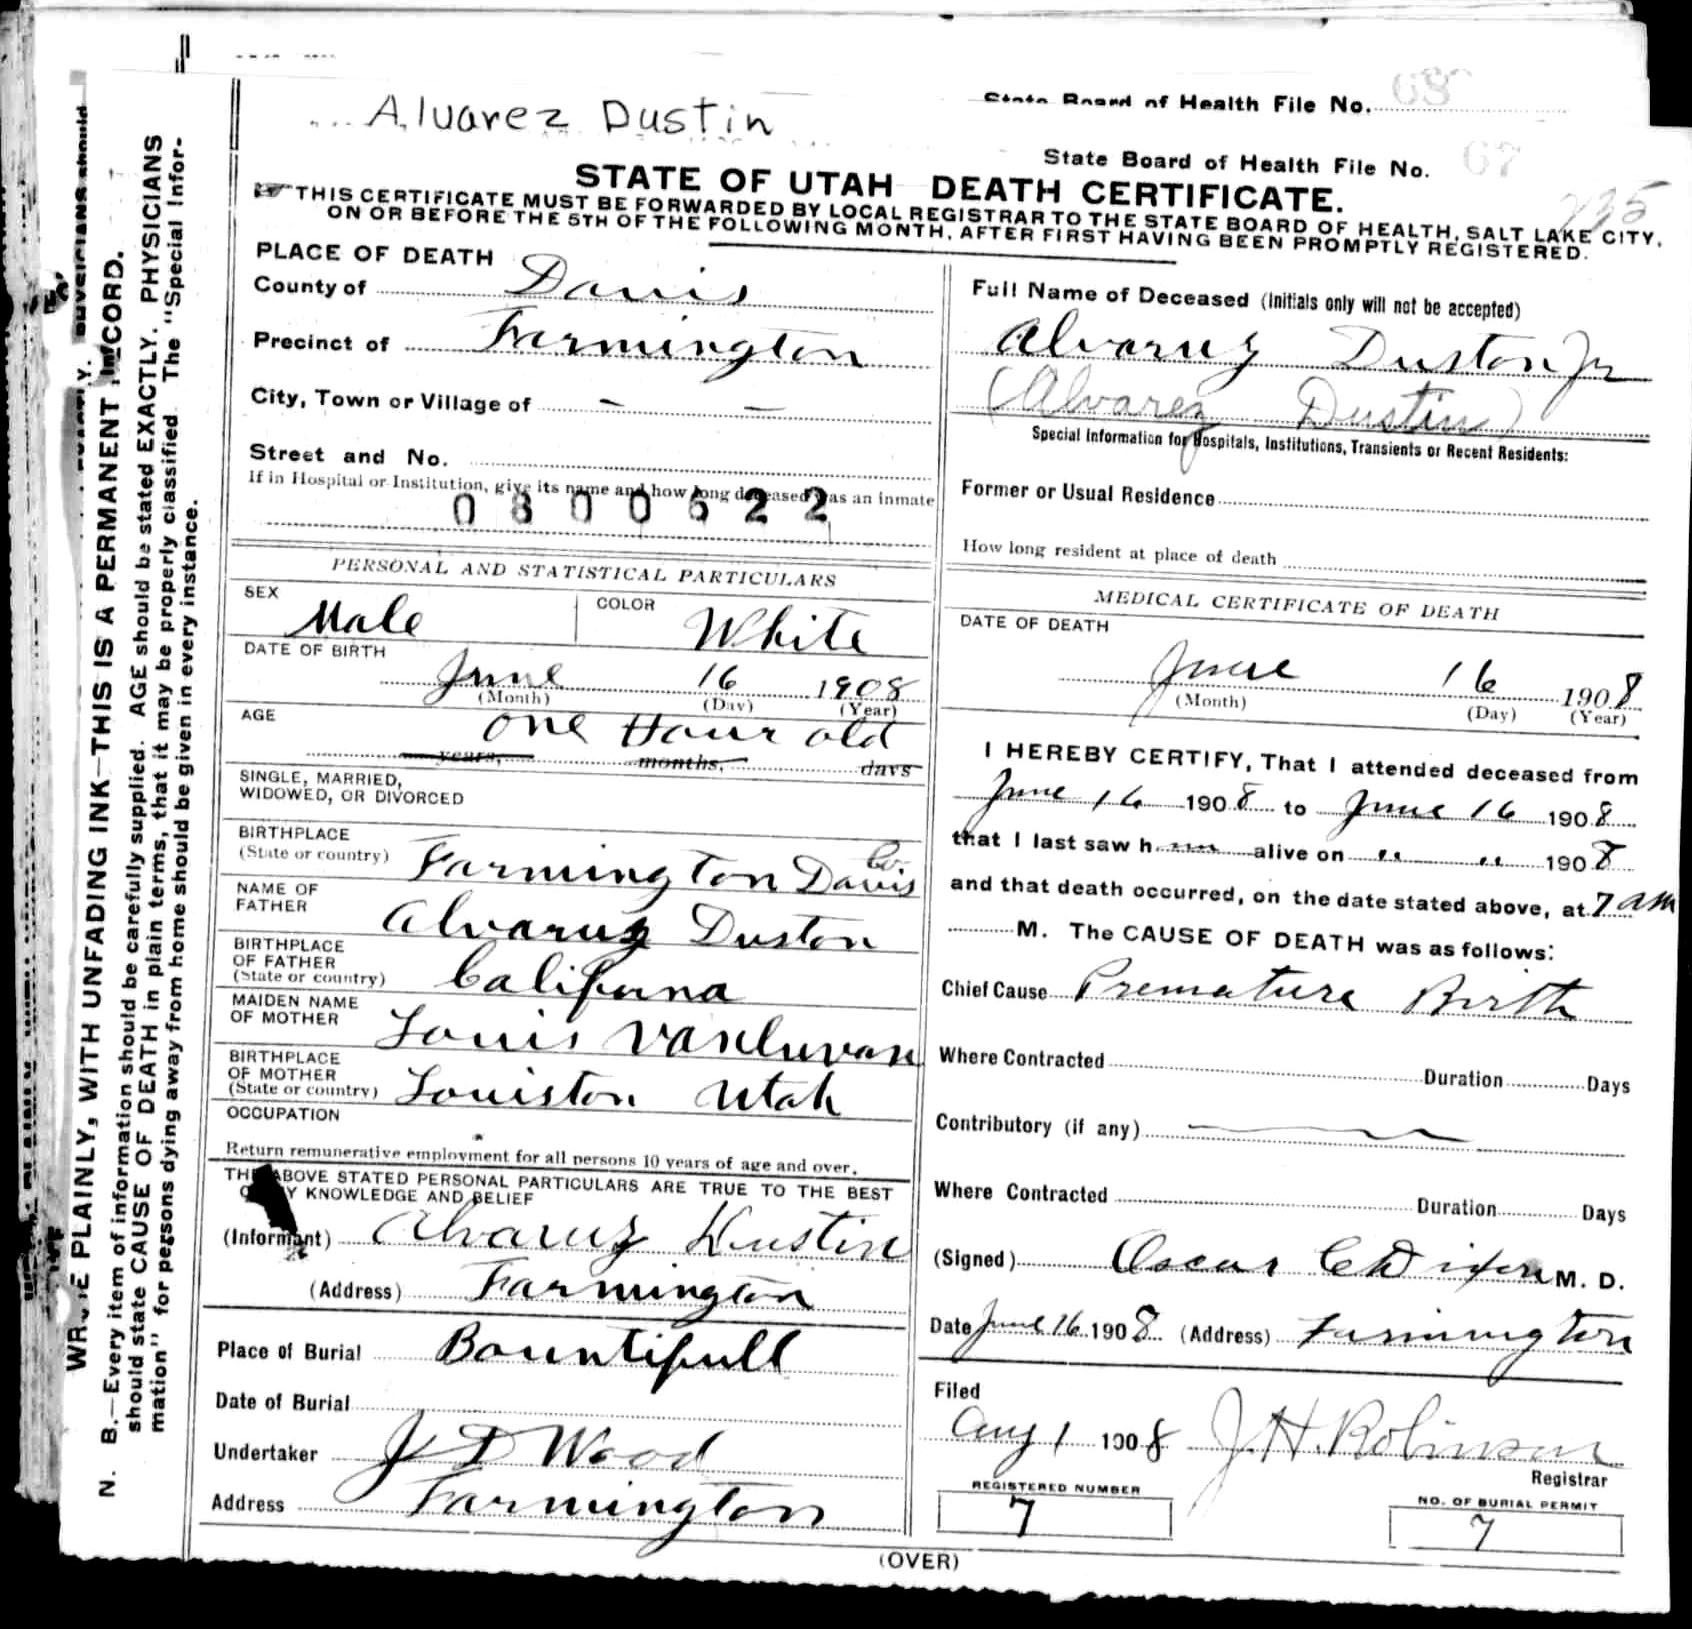 Alvarez Dustin
State Board of Health File No. 68
State Board of Health File No. 67
235
STATE OF UTAH DEATH CERTIFICATE.
THIS CERTIFICATE MUST BE FORWARDED BY LOCAL REGISTRAR TO THE STATE BOARD OF HEALTH, SALT LAKE CITY,
ON OR BEFORE THE 5TH OF THE FOLLOWING MONTH, AFTER FIRST HAVING BEEN PROMPTLY REGISTERED.
WRITE PLAINLY, WITH UNFADING INK—THIS IS A PERMANENT RECORD.
N. B.—Every item of information should be carefully supplied. AGE should be stated EXACTLY. PHYSICIANS
should state CAUSE OF DEATH in plain terms, that it may be properly classified. The "Special Infor-
mation" for persons dying away from home should be given in every instance.
PLACE OF DEATH
County of Davis
Precinct of Farmington
City, Town or Village of — —
Street and No.
If in Hospital or Institution, give its name and how long deceased was an inmate
0800622
PERSONAL AND STATISTICAL PARTICULARS
SEX Male COLOR White
DATE OF BIRTH
June 16 1908
(Month) (Day) (Year)
AGE one Hour old
years, months, days
SINGLE, MARRIED,
WIDOWED, OR DIVORCED
BIRTHPLACE
(State or country) Farmington Davis Co.
NAME OF
FATHER Alvaruz Duston
BIRTHPLACE
OF FATHER
(State or country) California
MAIDEN NAME
OF MOTHER Louis
BIRTHPLACE
OF MOTHER
(State or country) Louiston Utah
OCCUPATION
Return remunerative employment for all persons 10 years of age and over.
THE ABOVE STATED PERSONAL PARTICULARS ARE TRUE TO THE BEST
OF MY KNOWLEDGE AND BELIEF
(Informant) Alvaruz Dustin
(Address) Farmington
Place of Burial Bountifull
Date of Burial
Undertaker J D Wood
Address Farmington
Full Name of Deceased (Initials only will not be accepted)
Alvaruz Duston Jr
(Alvarez Dustin)
Special Information for Hospitals, Institutions, Transients or Recent Residents:
Former or Usual Residence
How long resident at place of death
MEDICAL CERTIFICATE OF DEATH
DATE OF DEATH
June 16 1908
(Month) (Day) (Year)
I HEREBY CERTIFY, That I attended deceased from
June 16 1908 to June 16 1908
that I last saw him alive on " " 1908
and that death occurred, on the date stated above, at 7 am
M. The CAUSE OF DEATH was as follows:
Chief Cause Premature Birth
Where Contracted Duration Days
Contributory (if any) —
Where Contracted Duration Days
(Signed) Oscar C Dixon M. D.
Date June 16 1908 (Address) Farmington
Filed
Aug 1 1908 J. H. Robinson
Registrar
REGISTERED NUMBER
7
NO. OF BURIAL PERMIT
7
(OVER)